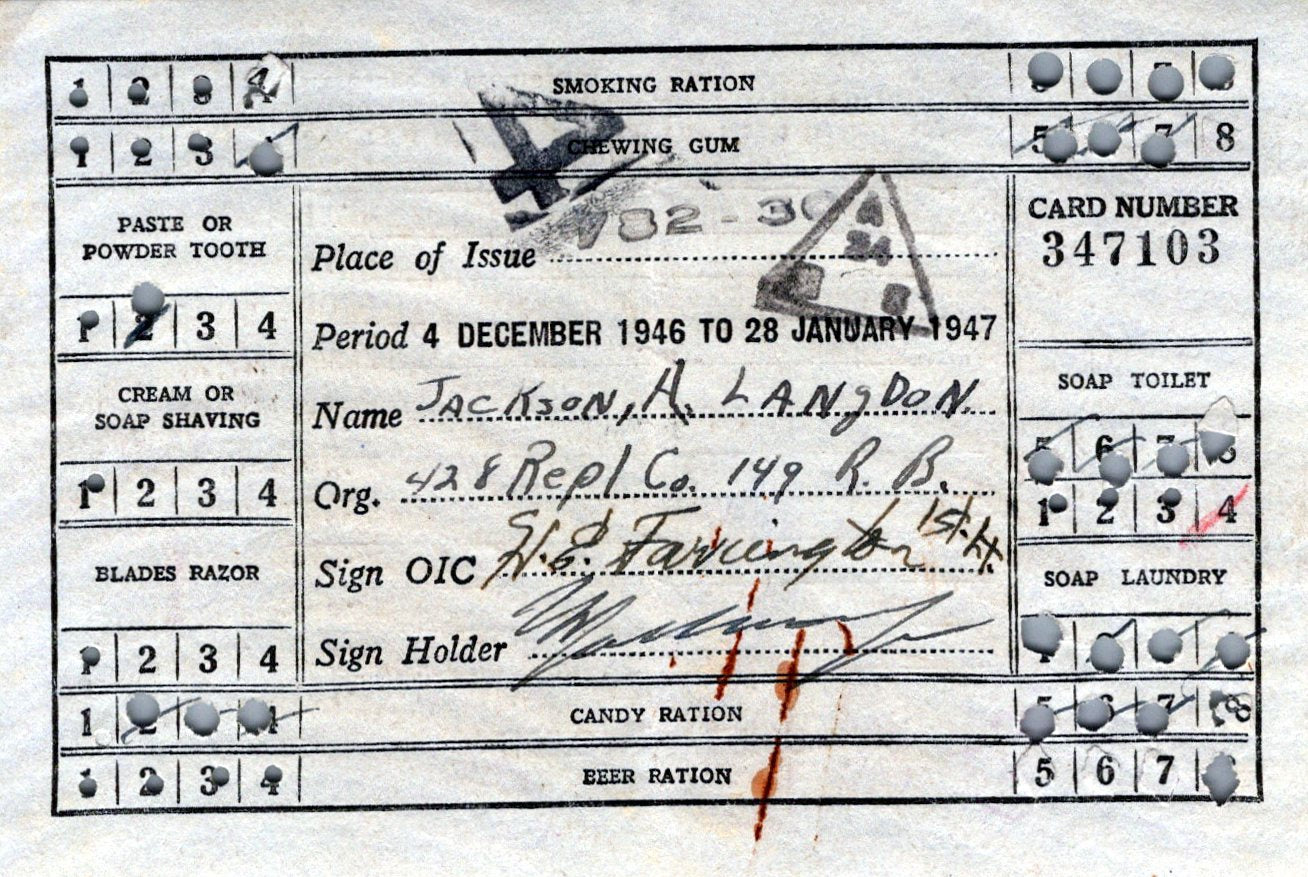 1 2 3 4 SMOKING RATION
1 2 3 CHEWING GUM 5 7 8
PASTE OR
POWDER TOOTH
1 2 3 4
CREAM OR
SOAP SHAVING
1 2 3 4
BLADES RAZOR
1 2 3 4
4
782-30
A
34
Place of Issue
Period 4 DECEMBER 1946 TO 28 JANUARY 1947
Name JACKSON, H. LANGDON
Org. 428 Repl Co. 149 R. B.
Sign OIC H.E. Farrington 1st Lt
Sign Holder
CARD NUMBER
347103
SOAP TOILET
5 6 7 8
1 2 3 4
SOAP LAUNDRY
1 CANDY RATION 5 6 7 8
1 2 3 4 BEER RATION 5 6 7